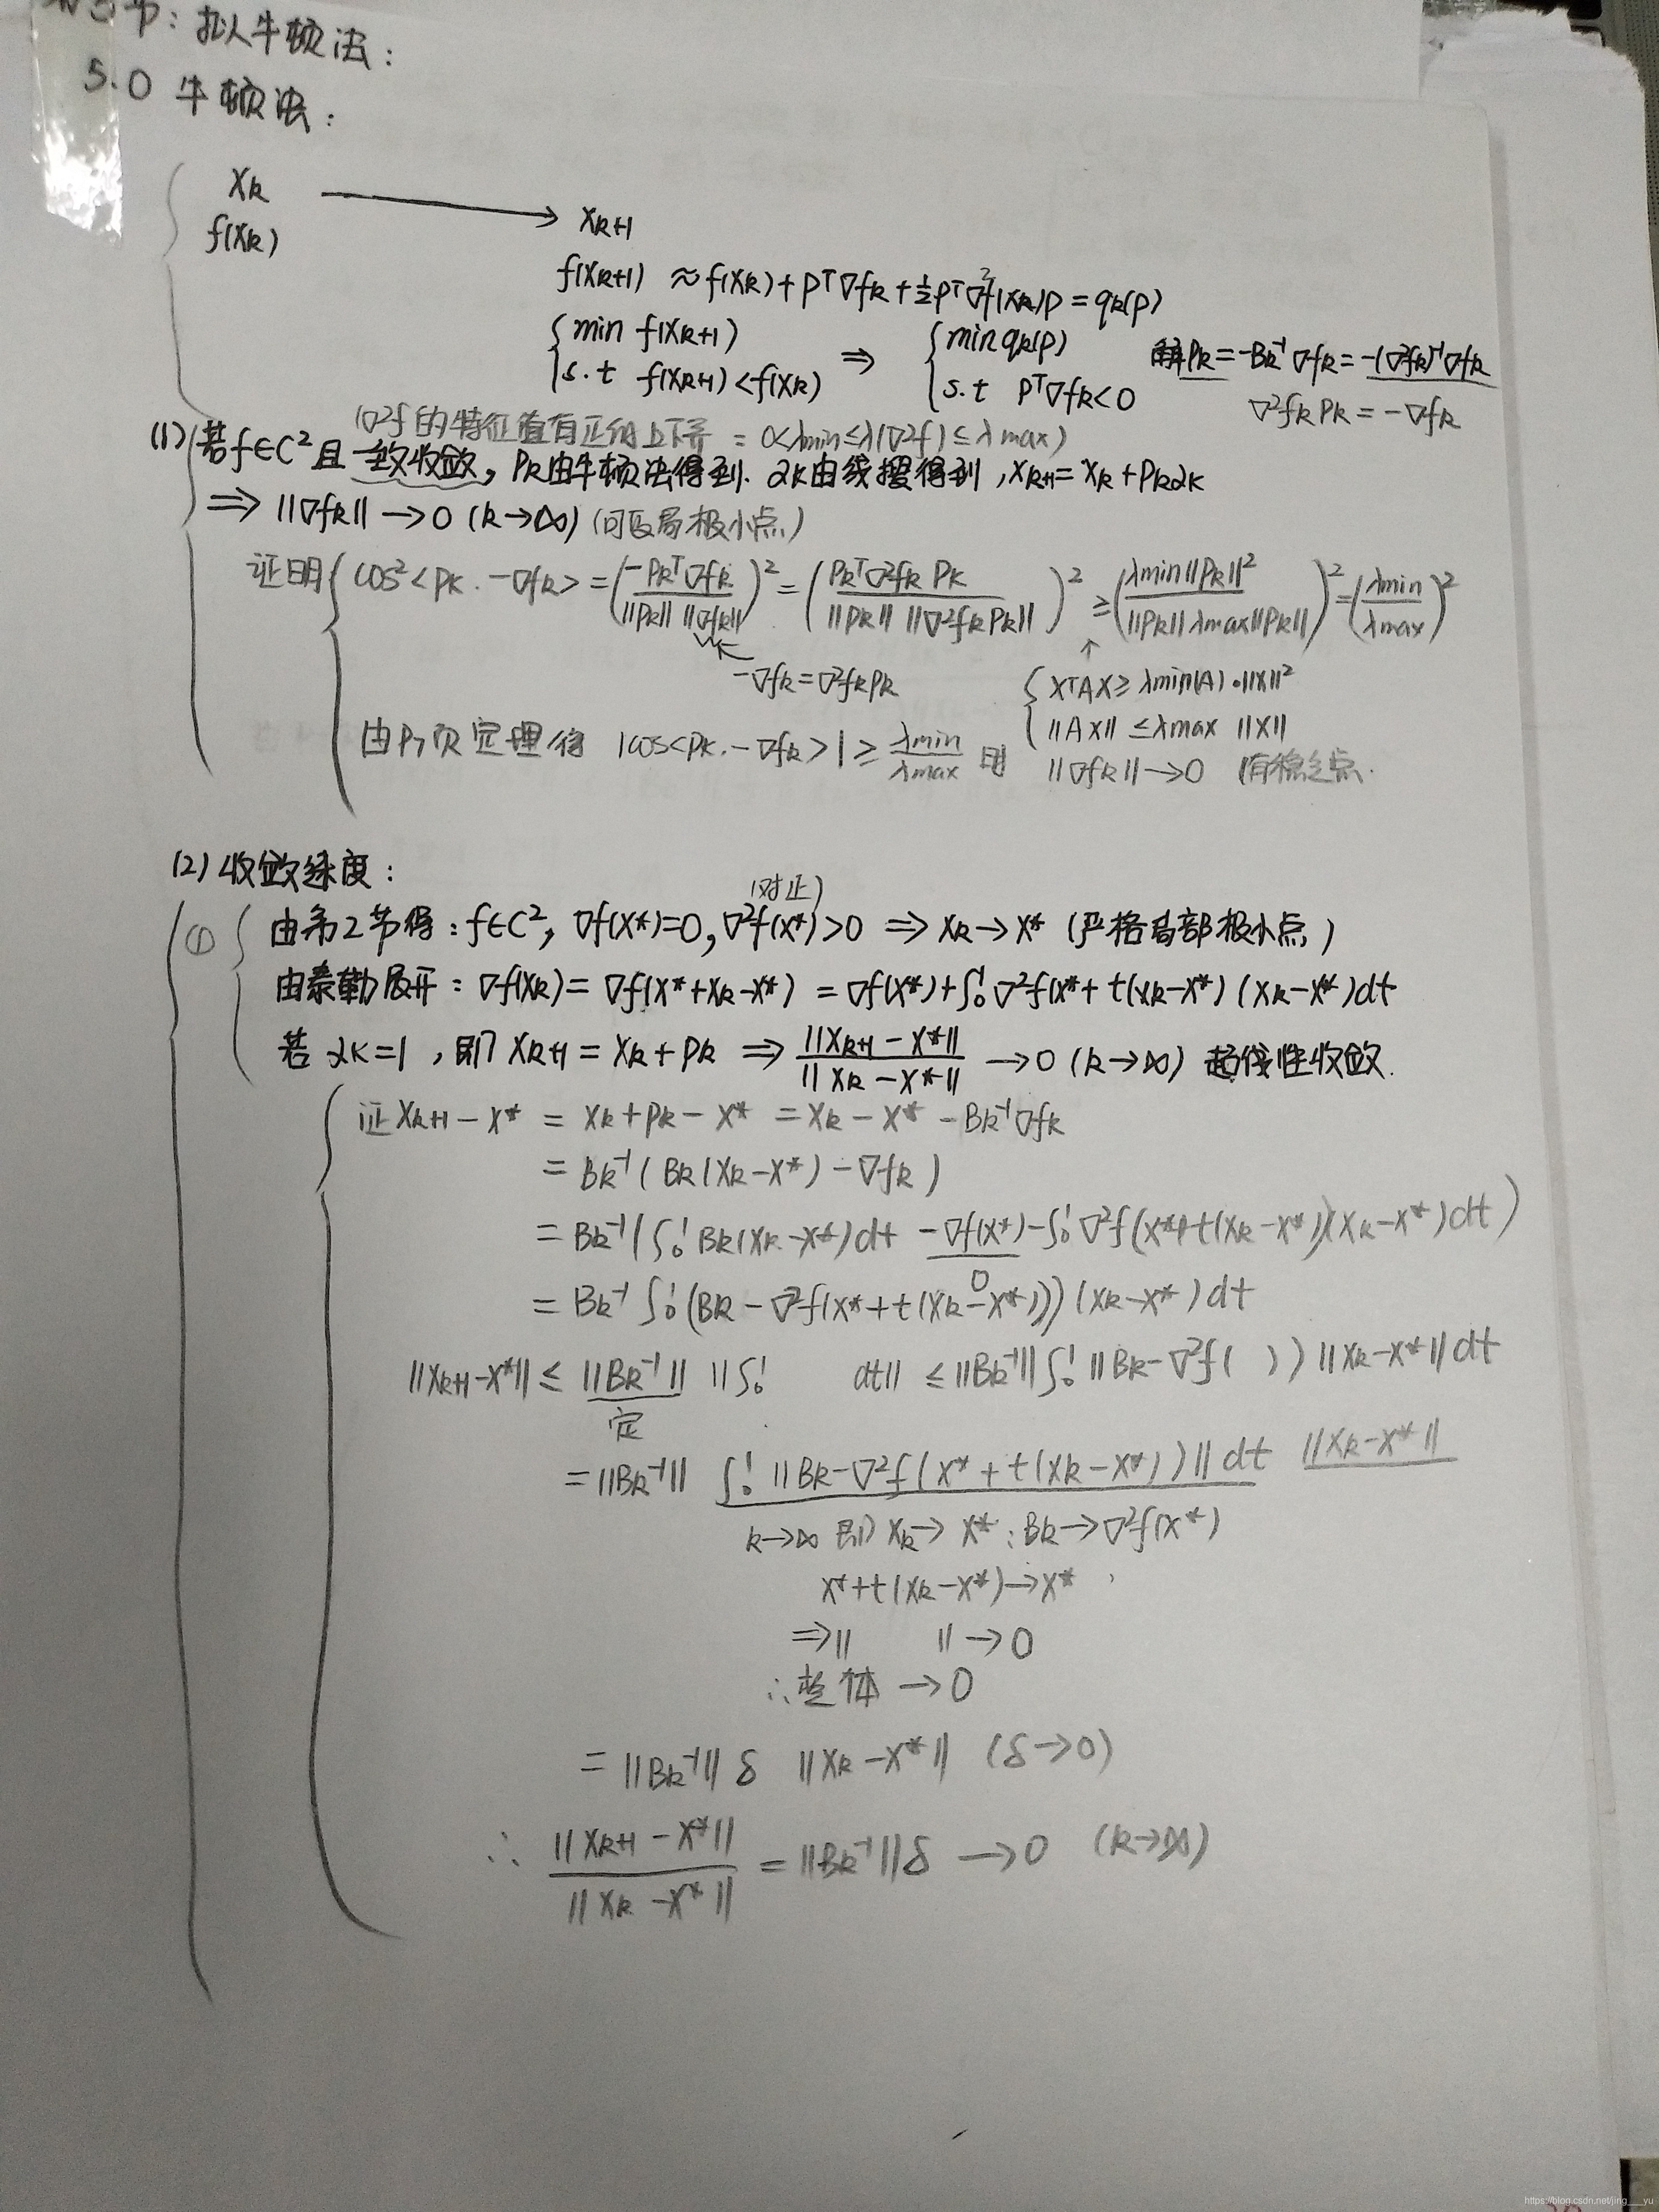 节：拟牛顿法：
5.0 牛顿法：
Xk → Xk+1
f(Xk)
f(Xk+1) ≈ f(Xk) + Pᵀ∇fk + ½Pᵀ∇²f(Xk)P = qk(P)
{ min f(Xk+1) ⇒ { min qk(P) 解Pk = -Bk⁻¹∇fk = -(∇²fk)⁻¹∇fk
s.t f(Xk+1) < f(Xk) s.t Pᵀ∇fk < 0 ∇²fk Pk = -∇fk
(∇²f的特征值有正的上下界 = 0<λmin≤λ(∇²f)≤λmax)
(1) 若f∈C²且一致收敛，Pk由牛顿法得到. αk由线搜得到，Xk+1 = Xk + Pkαk
⇒ ||∇fk|| → 0 (k→∞) (局极小点)
证明 { cos²<Pk. -∇fk> = (-Pkᵀ∇fk / ||Pk|| ||∇fk||)² = (Pkᵀ∇²fk Pk / ||Pk|| ||∇²fk Pk||)² ≥ (λmin||Pk||² / ||Pk||λmax||Pk||)² = (λmin / λmax)²
-∇fk = ∇²fk Pk { XᵀAX ≥ λmin(A)·||X||²
||AX|| ≤ λmax ||X||
由 定理得 |cos<Pk. -∇fk>| ≥ λmin / λmax 则 ||∇fk|| → 0 (有稳定点.
(2) 收敛速度：
(对正)
① { 由第2节得：f∈C², ∇f(X*)=0, ∇²f(X*)>0 ⇒ Xk→X* (严格局部极小点)
由泰勒展开：∇f(Xk) = ∇f(X*+Xk-X*) = ∇f(X*) + ∫₀¹ ∇²f(X*+t(Xk-X*) (Xk-X*)dt
若 αk=1，则 Xk+1 = Xk + Pk ⇒ ||Xk+1 - X*|| / ||Xk - X*|| → 0 (k→∞) 超线性收敛.
证 Xk+1 - X* = Xk + Pk - X* = Xk - X* - Bk⁻¹∇fk
= Bk⁻¹(Bk(Xk-X*) - ∇fk)
= Bk⁻¹(∫₀¹ Bk(Xk-X*)dt - ∇f(X*) - ∫₀¹ ∇²f(X*+t(Xk-X*))(Xk-X*)dt)
0
= Bk⁻¹ ∫₀¹ (Bk - ∇²f(X*+t(Xk-X*))) (Xk-X*) dt
||Xk+1-X*|| ≤ ||Bk⁻¹|| ||∫₀¹ dt|| ≤ ||Bk⁻¹|| ∫₀¹ ||Bk-∇²f( )) ||Xk-X*|| dt
定
= ||Bk⁻¹|| ∫₀¹ ||Bk-∇²f(X*+t(Xk-X*))|| dt ||Xk-X*||
k→∞ 即 Xk→X* : Bk→∇²f(X*)
X*+t(Xk-X*)→X*
⇒|| || → 0
∴整体 → 0
= ||Bk⁻¹|| δ ||Xk-X*|| (δ→0)
∴ ||Xk+1 - X*|| / ||Xk - X*|| = ||Bk⁻¹||δ → 0 (k→∞)
https://blog.csdn.net/jing___yu